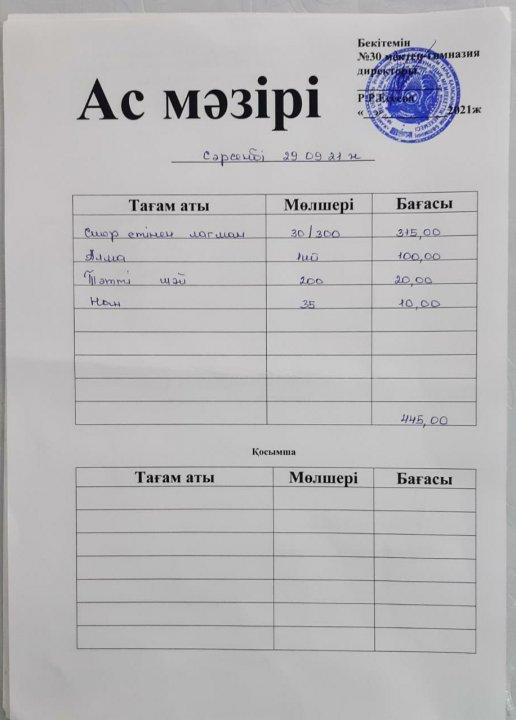 Бекітемін
№30 мектеп-гимназия
директоры
« 2021ж
Ас мәзірі
Сәрсенбі 29 09 21 ж
Тағам аты Мөлшері Бағасы
Сиыр етінен лагман 30/300 315,00
Алма 100,00
Тәтті шәй 200 20,00
Нан 35 10,00
445,00
Қосымша
Тағам аты Мөлшері Бағасы